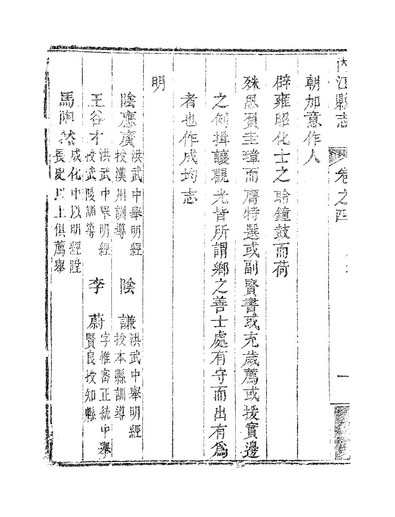 內江縣志 卷之四 一
朝加意作人
辟雍昭化士之聆鐘鼓而荷
殊恩賓圭璋而膺特選或副賢書或充歲薦或援實邊
之例揖讓觀光皆所謂鄉之善士處有守而出有為
者也作成均志
明
陰應廣 洪武中舉明經授漢州訓導 陰謙 洪武中舉明經授本縣訓導
王谷才 洪武中舉明經授武陵訓導 李蔚 字惟審正統中舉賢良授知縣
馬 然 成化中以明經 以上俱薦舉